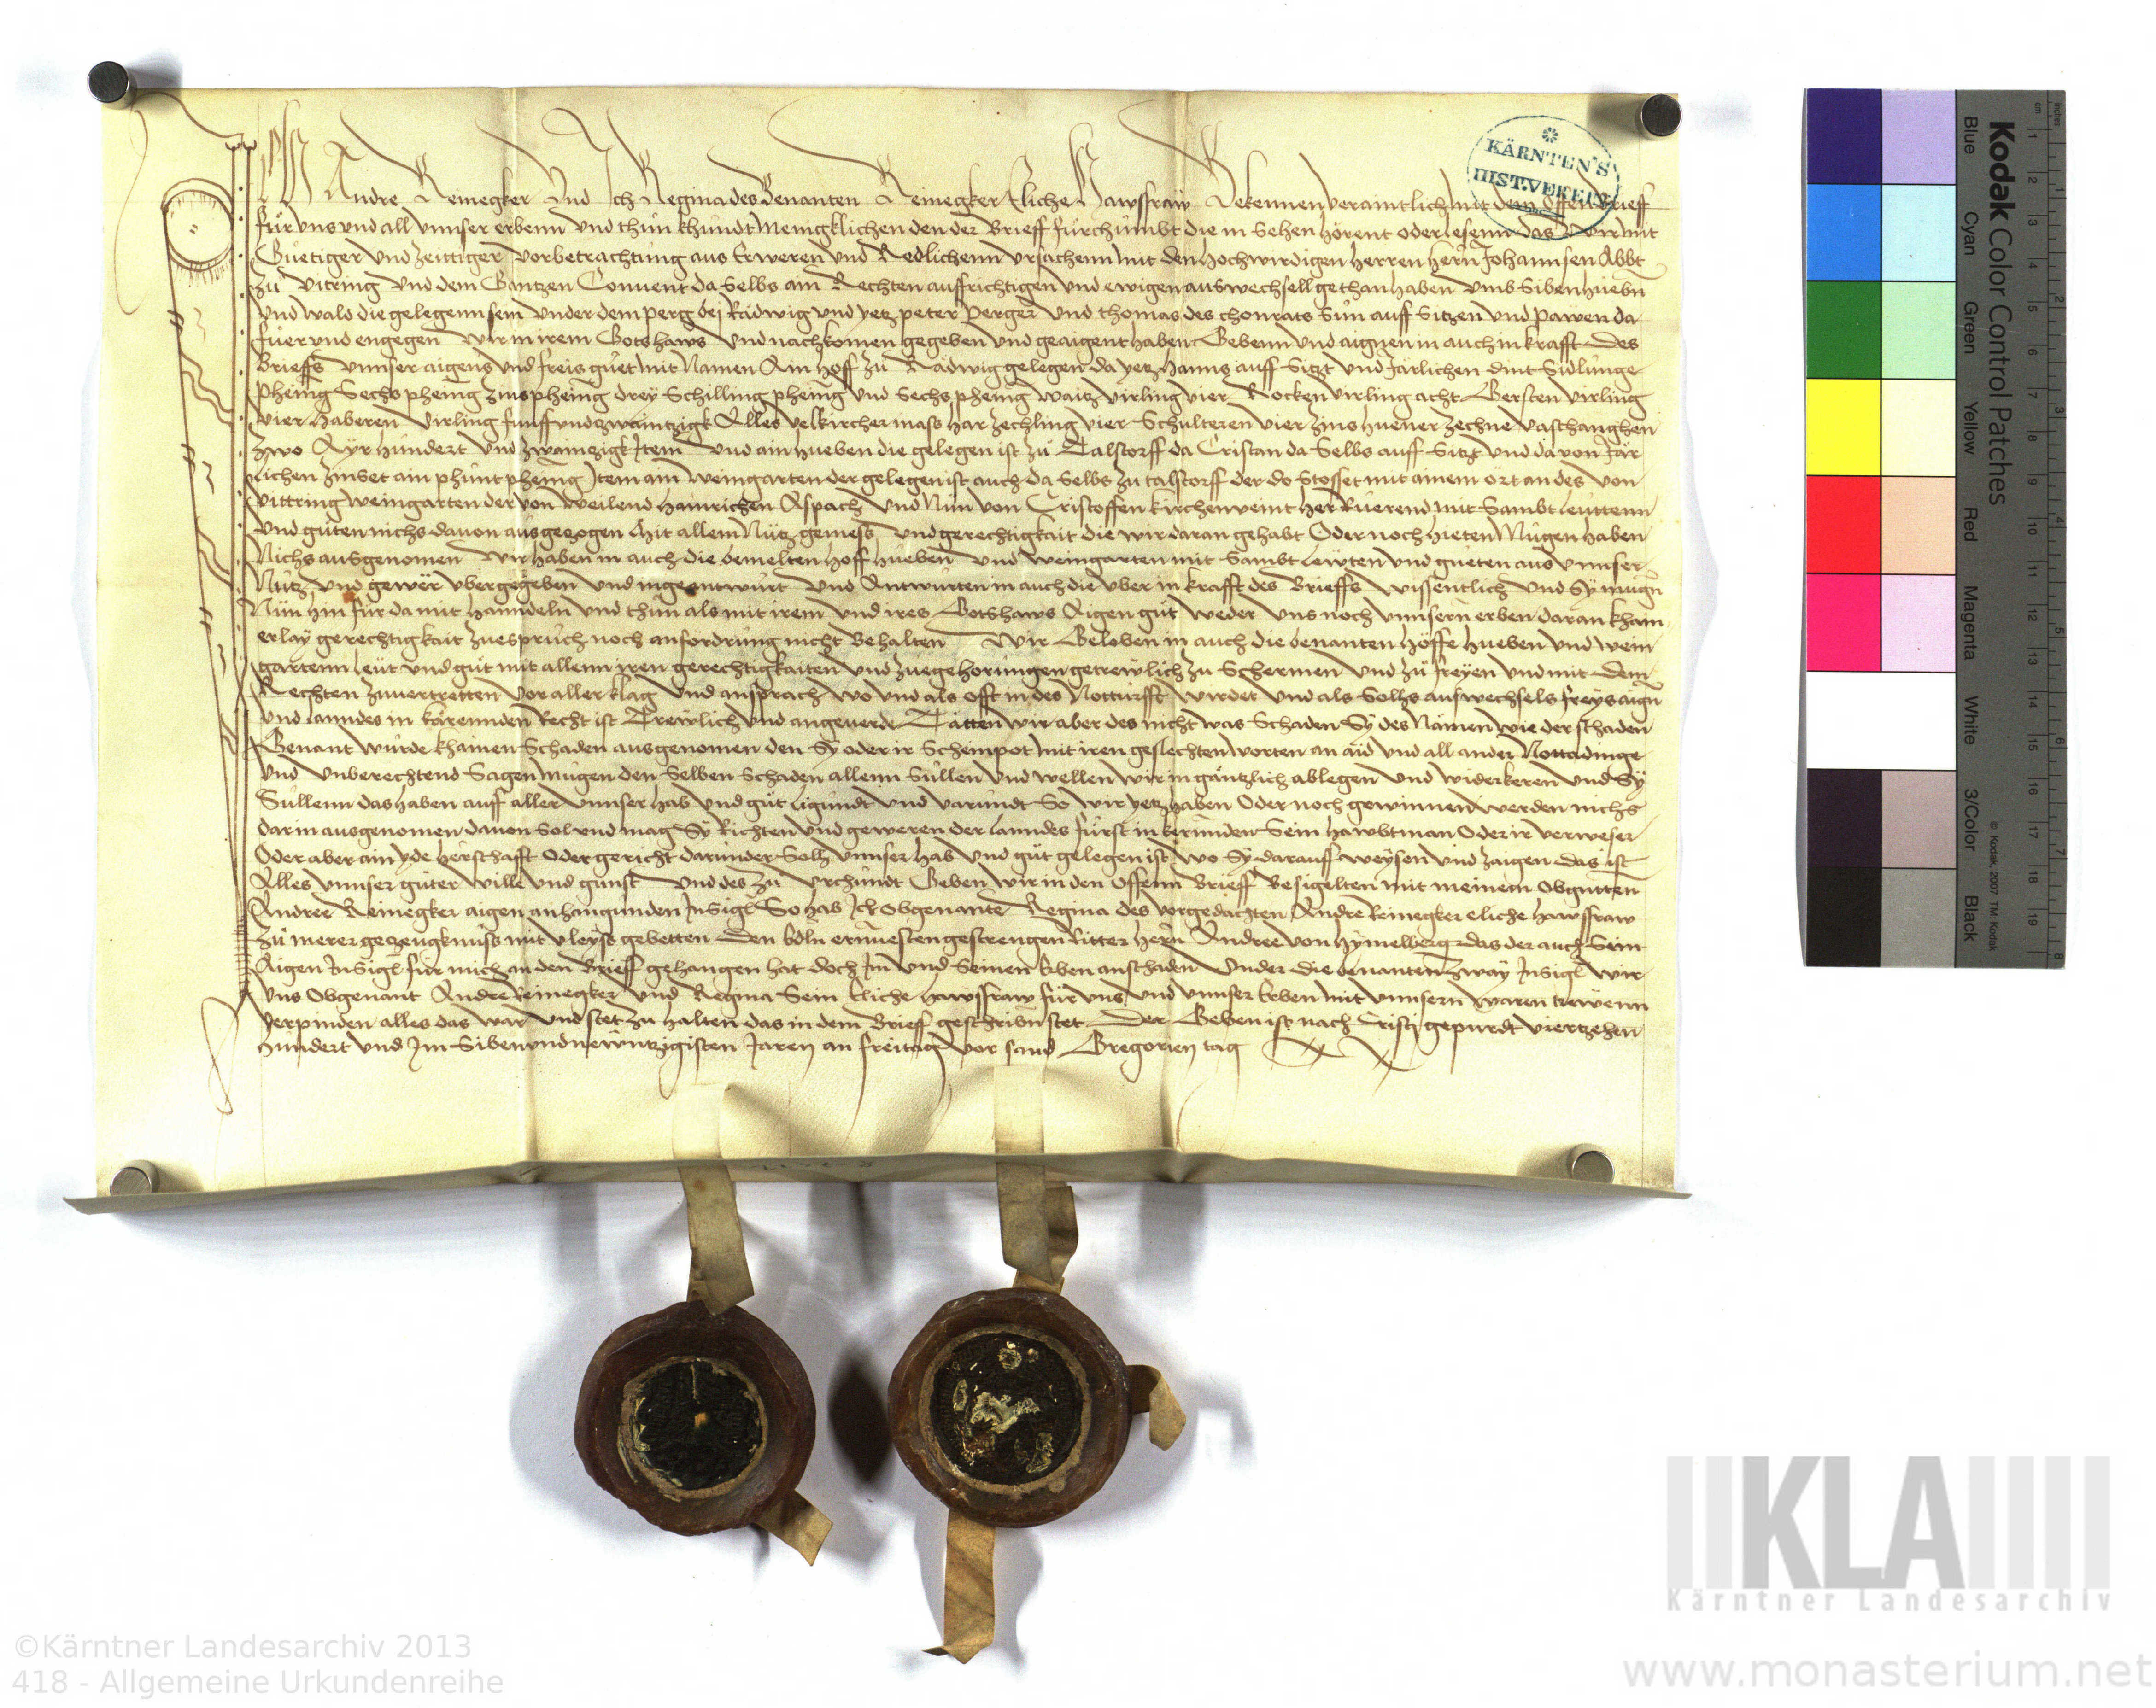 Ich Andre Reinegker Und Ich Regina des Benanten Reinegker Eliche Hawsfraw Bekennen veraintlich mit dem offen brieff
für uns und all unnser erbenn und thün khundt Menigklichen den der Brieff fürchümbt die in Sehen hörent oder lesenn das Wir mit
Guetiger und zeittiger vorbetrachtung aus Erweren und Redlichenn ursachenn mit den hochwirdigen herren hern Johannsen Abbt
zu Vitring und dem Gantzen Convent da Selbs ain Rechten auffrichtigen und ewigen auswechsell gethan haben umb Siben huebn
und wald die gelegenn sein under dem perg bej Radwig und yetz peter perger und thomas des chonrats Sun auff Sitzen und pawen da
fuer und engegen wir in irem Gotshaws und nachkomen gegeben und geaigent haben Gebenn und aignen in auch in krafft des
Brieffs unnser aigens und freis guet mit Namen Ain hoff zu Radwig gelegen da yetz hanns auff Sitzt und Järlichen dint Sidlunge
phenig Sechs phenig zins phenig drey Schilling phenig und Sechs phenig waitz virling vier Rocken virling acht Gersten virling
vier haberen virling funff und zwaintzigk Alles velkircher mass har zechling vier Schulteren vier zins huener zechne vaschanghen
zwo Ayr hundert und zwaintzigk Item und ain hueben die gelegen ist zu Talstorff da Cristan da Selbs auff Sitzt und da von Jär
lichen zinset ain phunt phenig Item ain weingarten der gelegen ist auch da Selbs zu talstorff der do Stosset mit ainem ört an des von
vittring weingarten der von weilend hainrichen Aspach und Nün von Cristoffen kirchenveint her Ruerend mit Sambt leuttenn
und guten nichs davon ausgezogen Mit allem Nutz geniess und gerechtigkait die wir daran gehabt Oder noch hieten Mügen haben
Nichs ausgenomen wir haben in auch die bemelten hoff hueben und weingarten mit Sambt lewten und gueten aus unnser
Nutz und gewer ubergegeben und ingeantwurt und Antwurten in auch die uber in krafft des Brieffs wissentlich und Sy mügn
Nün hin für da mit hanndeln und thün als mit irem und ires Gotshaws Aigen gut weder uns noch unnsern erben daran kham
erlay gerechtigkait zuespruch noch anfordrung nicht Behalten Wir Geloben in auch die benanten höffe hueben und wein
gartenn leut und gut mit allenn iren gerechtigkaiten und zuegehorungen getrewlich zu Schermen und zu freyen und mit dem
Rechten zuvertretten vor aller klag und ansprach wo und als offt in des Notturfft wirdet und als Solhs auswechsels freys aign
und lanndes in kärennden Recht ist Trewlich und angeverde Tätten wir aber des nicht was Schaden Sy des Namen wie der schaden
Genant wurde khainen Schaden ausgenomen den Sy oder ir Schempot mit iren geslechten worten an aid und all ander Nottadinge
und unberechtend Sagen mügen den Selben Schaden allenn Süllen und wellen wir in gäntzlich ablegen und widerkeren und Sy
Süllenn das haben auff aller unnser hab und gut ligundt und varundt So wir yetz haben Oder noch gewinnen werden nichs
darin ausgenomen davon Sol und mag Sy Richten und geweren der lanndes fürst in kernnden Sein hawbtman Oder ir verweser
Oder aber ain yde herschafft Oder gericht darunder Solh unnser hab und gut gelegen ist wo Sy darauf weysen und zaigen das ist
Alles unnser guter wille und gunst und des zu urchundt Geben wir in den Offenn Brieff Besigelten mit meinem Obgntten
Andree Reinegker aigen anhangunden Insigl So hab Ich Obgenante Regina des vorgedachten Andre Reinegker eliche hawsfraw
zu merer gezeugknuss mit vleyss gebetten den Edln ernvesten gestrengen Ritter hern Andree von hymelberg das der auch Sein
Aigen Insigl für mich an den Brieff gehangen hat doch Im und Seinen Erben anschaden Under die benanten zway Insigl wir
uns Obgenant Andre Reinegker und Regina Sein Eliche hawsfraw für uns und unnser Erben mit unnsern waren trewenn
verpinden alles das war und stet zu halten das in dem Brieff geschribn stet Der Geben ist nach Cristj gepurdt viertzehen
hundert und Im Siben und newntzigisten Jaren an freitag vor sand Gregorien tag
KÄRNTEN'S
HIST. VEREIN
Kodak Color Control Patches
Blue Cyan Green Yellow Red Magenta White 3/Color Black
© Kodak, 2007 TM: Kodak
inches
cm
1 2 3 4 5 6 7 8
1 2 3 4 5 6 7 8 9 10 11 12 13 14 15 16 17 18 19
KLA
Kärntner Landesarchiv
©Kärntner Landesarchiv 2013
418 - Allgemeine Urkundenreihe
www.monasterium.net